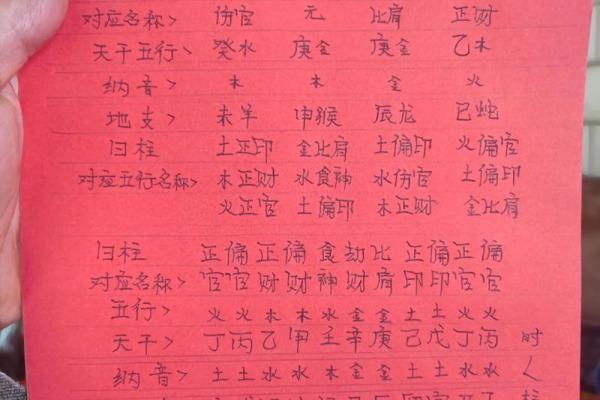 对应名称> 伤官 元 比肩 正财
天干五行> 癸水 庚金 庚金 乙木
纳音> 木 木 金 火
地支> 未羊 申猴 辰龙 巳蛇
日柱 土正印 金比肩 土偏印 火偏官
对应五行名称> 木正财 水食神 水伤官 土偏印
火正官 土偏印 木正财 金比肩
日柱 正偏正偏食劫比正偏正偏
对应名称> 官官财财神财肩印印官官
五行> 火火木木水金金土土火火
天干> 丁丙乙甲壬辛庚己戊丁丙 时
纳音> 土土水水木金金土土水水
柱